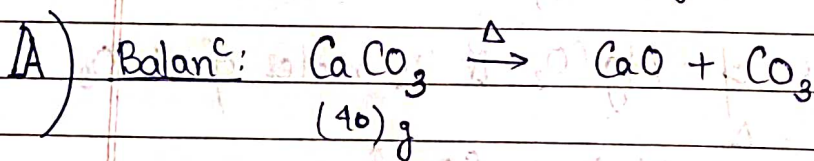 A) Balanᶜ: CaCO₃ —Δ→ CaO + CO₃
(40) g